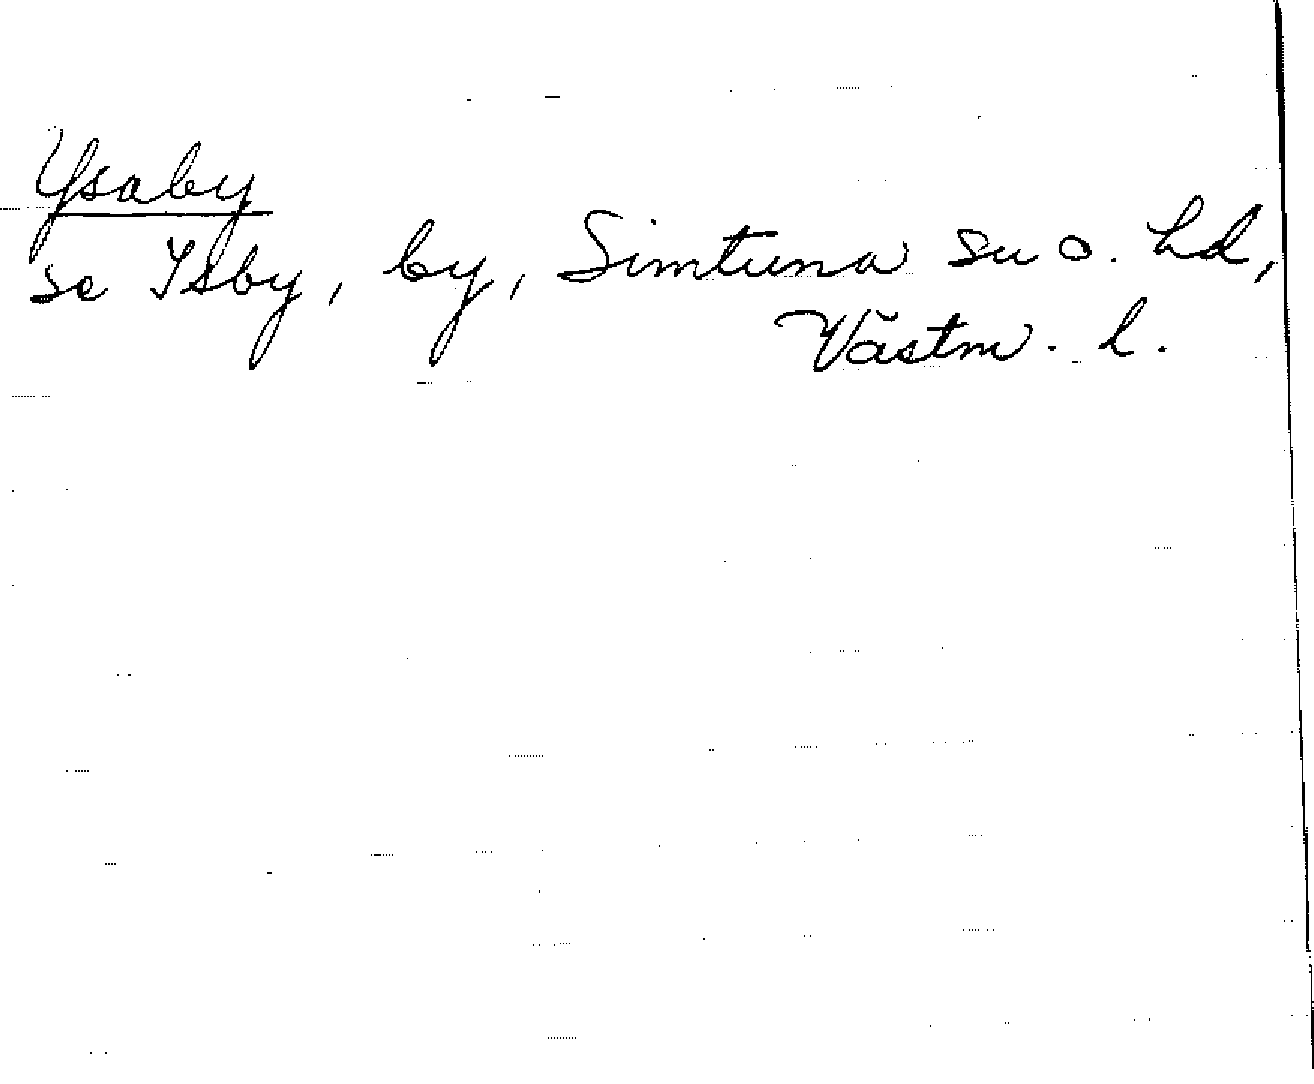 Ysaby
se Isby, by, Simtuna sn o. hd,
Västm. l.